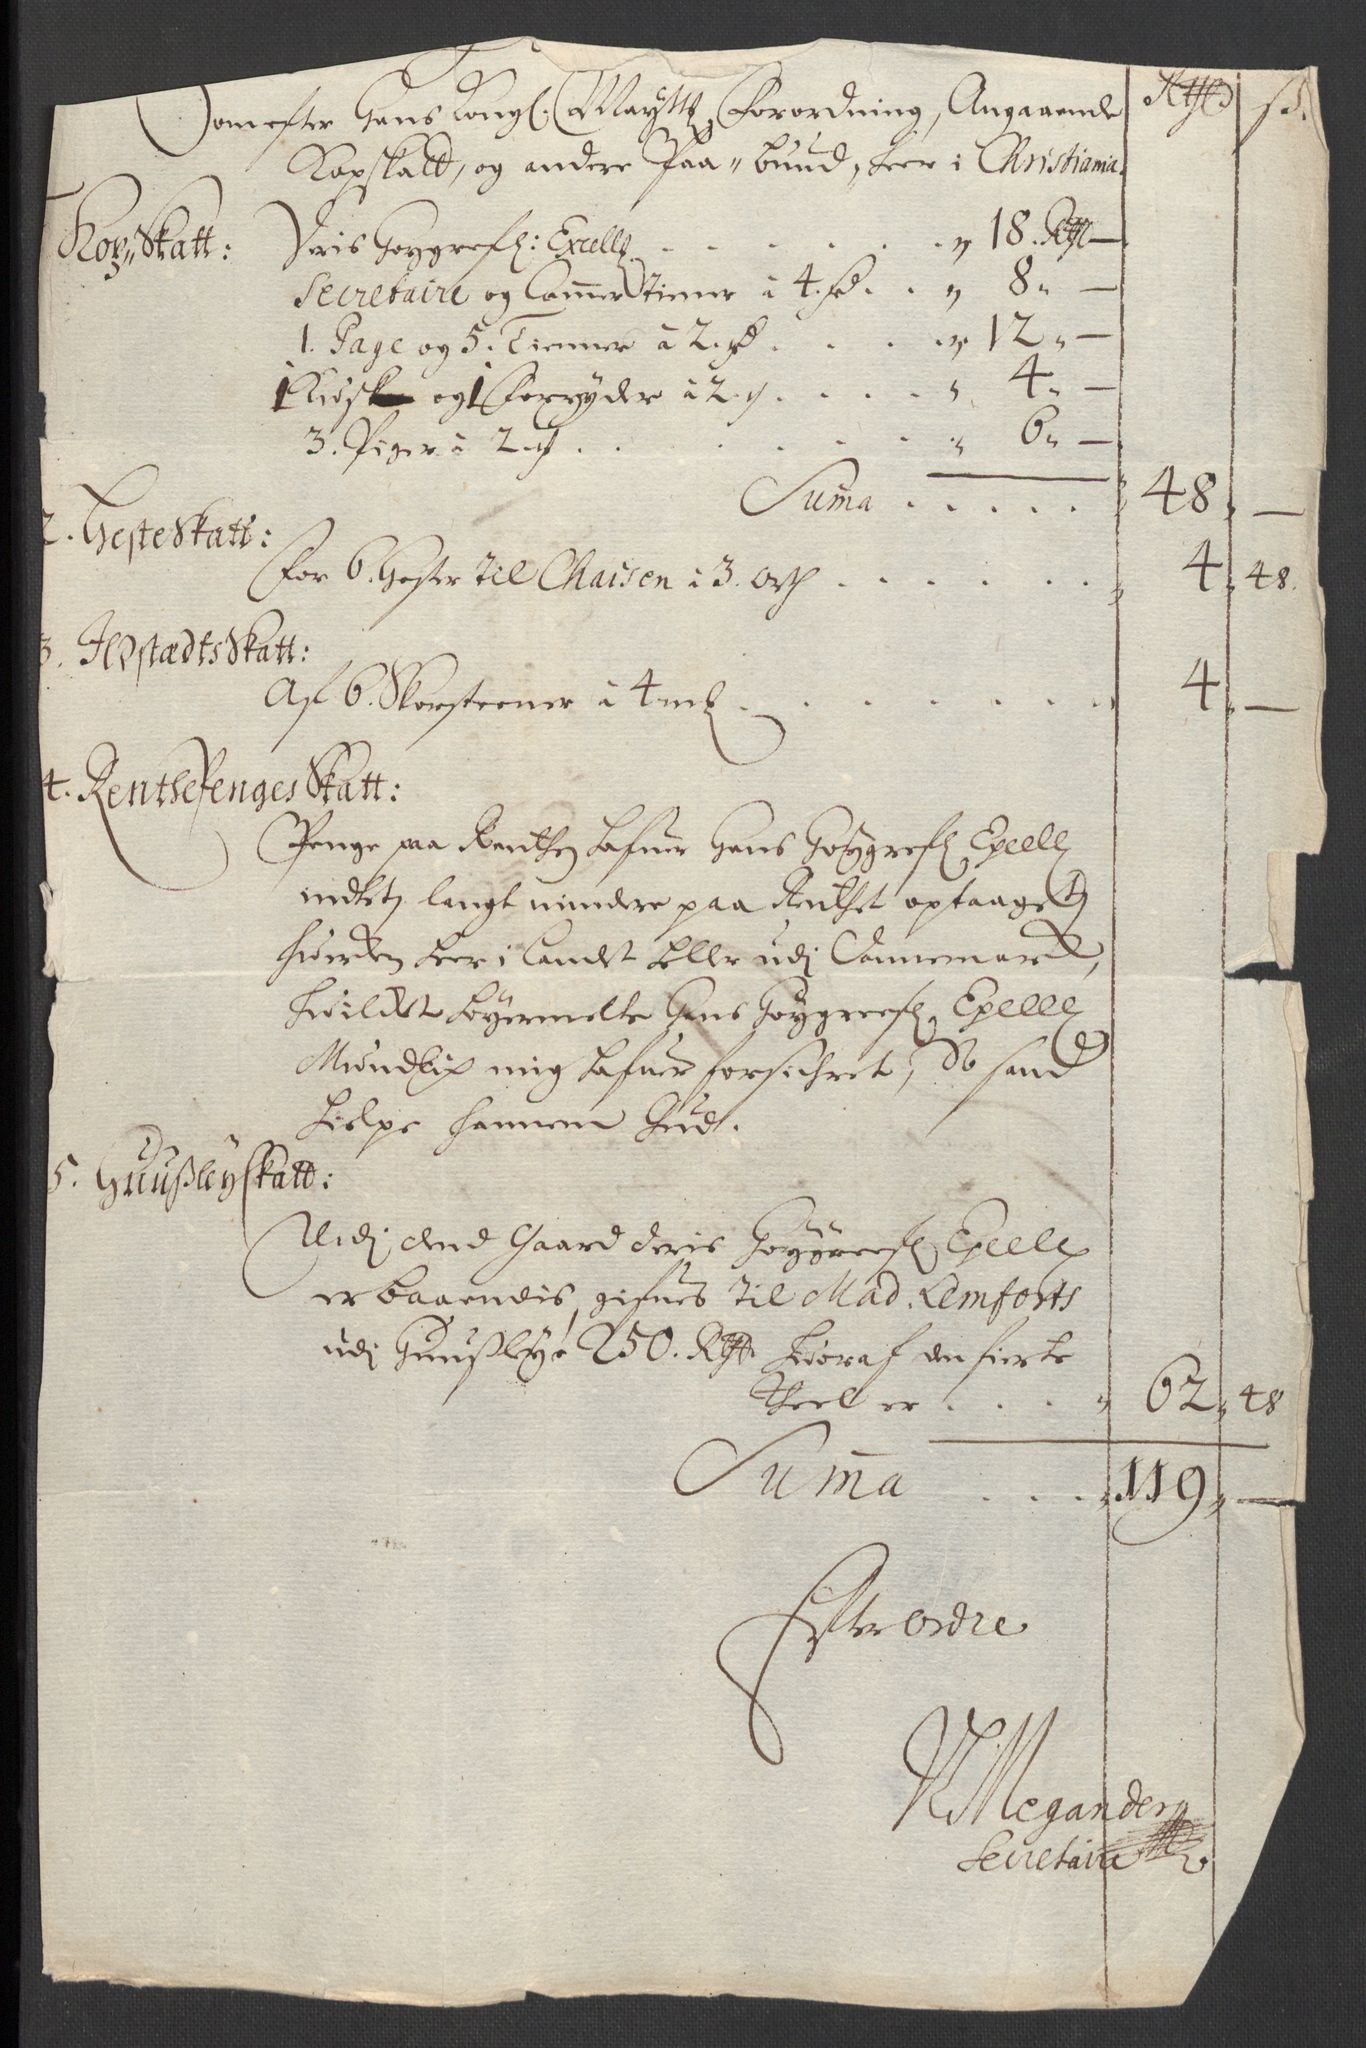 Som efter Hans Kongl: Maÿtts Forordning, Angaaende Rthlr sd.
Kopskatt, og andere Paa„buud, her i Christiania.
Kop„Skatt: Deris Høygrefl: Excell: . . . . . . „ 18. Rthl —
Secretaire og Cammer Tiener à 4. rd. . . „ 8„ —
1. Page og 5. Tienner à 2. rd . . . . „ 12„ —
1 Kudsk og 1 Forryder à 2. rd . . . . „ 4„ —
3. Piger à 2. rd . . . . . . „ 6„ —
Suma . . . . . „ 48„ —
2. HesteSkatt:
For 6. Hester til Chaisen à 3. ort . . . . . . „ 4„ 48.
3. IldstædtsSkatt:
Af 6. Skorsteener à 4 mk . . . . . . . „ 4„ —
4. RenthePengesSkatt:
Penge paa Renthe hafuer Hans Høygrefl. Excell:
indtet, langt mindere paa Renthet optaaget,
huerden her i Landet heller udj Dannemarck,
huilket høyermelte Hans Høygreefl. Excell:
Mundlig mig hafuer forsichret, Så sand
hielpe hannem Gud.
5. HuußleySkatt:
Udj dend Gaard deris Høygreefl. Excell:
er boaendis, gifues til Mad. Lemforts
udj Huußleye 250. Rthr. hvoraf den fierte
Theel er . . . . „ 62„ 48
Suma . . . „ 119„ —
Efter ordre
Megander
Secretaire